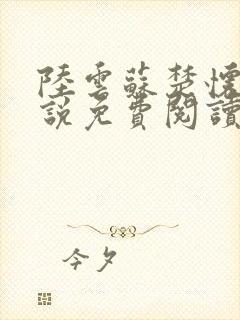 陸雲蘇楚懷
說免費閱讀
今夕